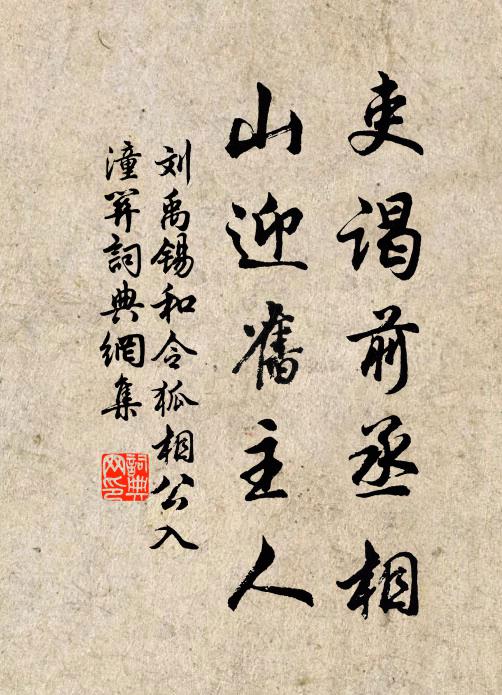 吏谒前丞相
山迎舊主人
刘禹锡和令狐相公入
潼关詞典網集
詞典
网印